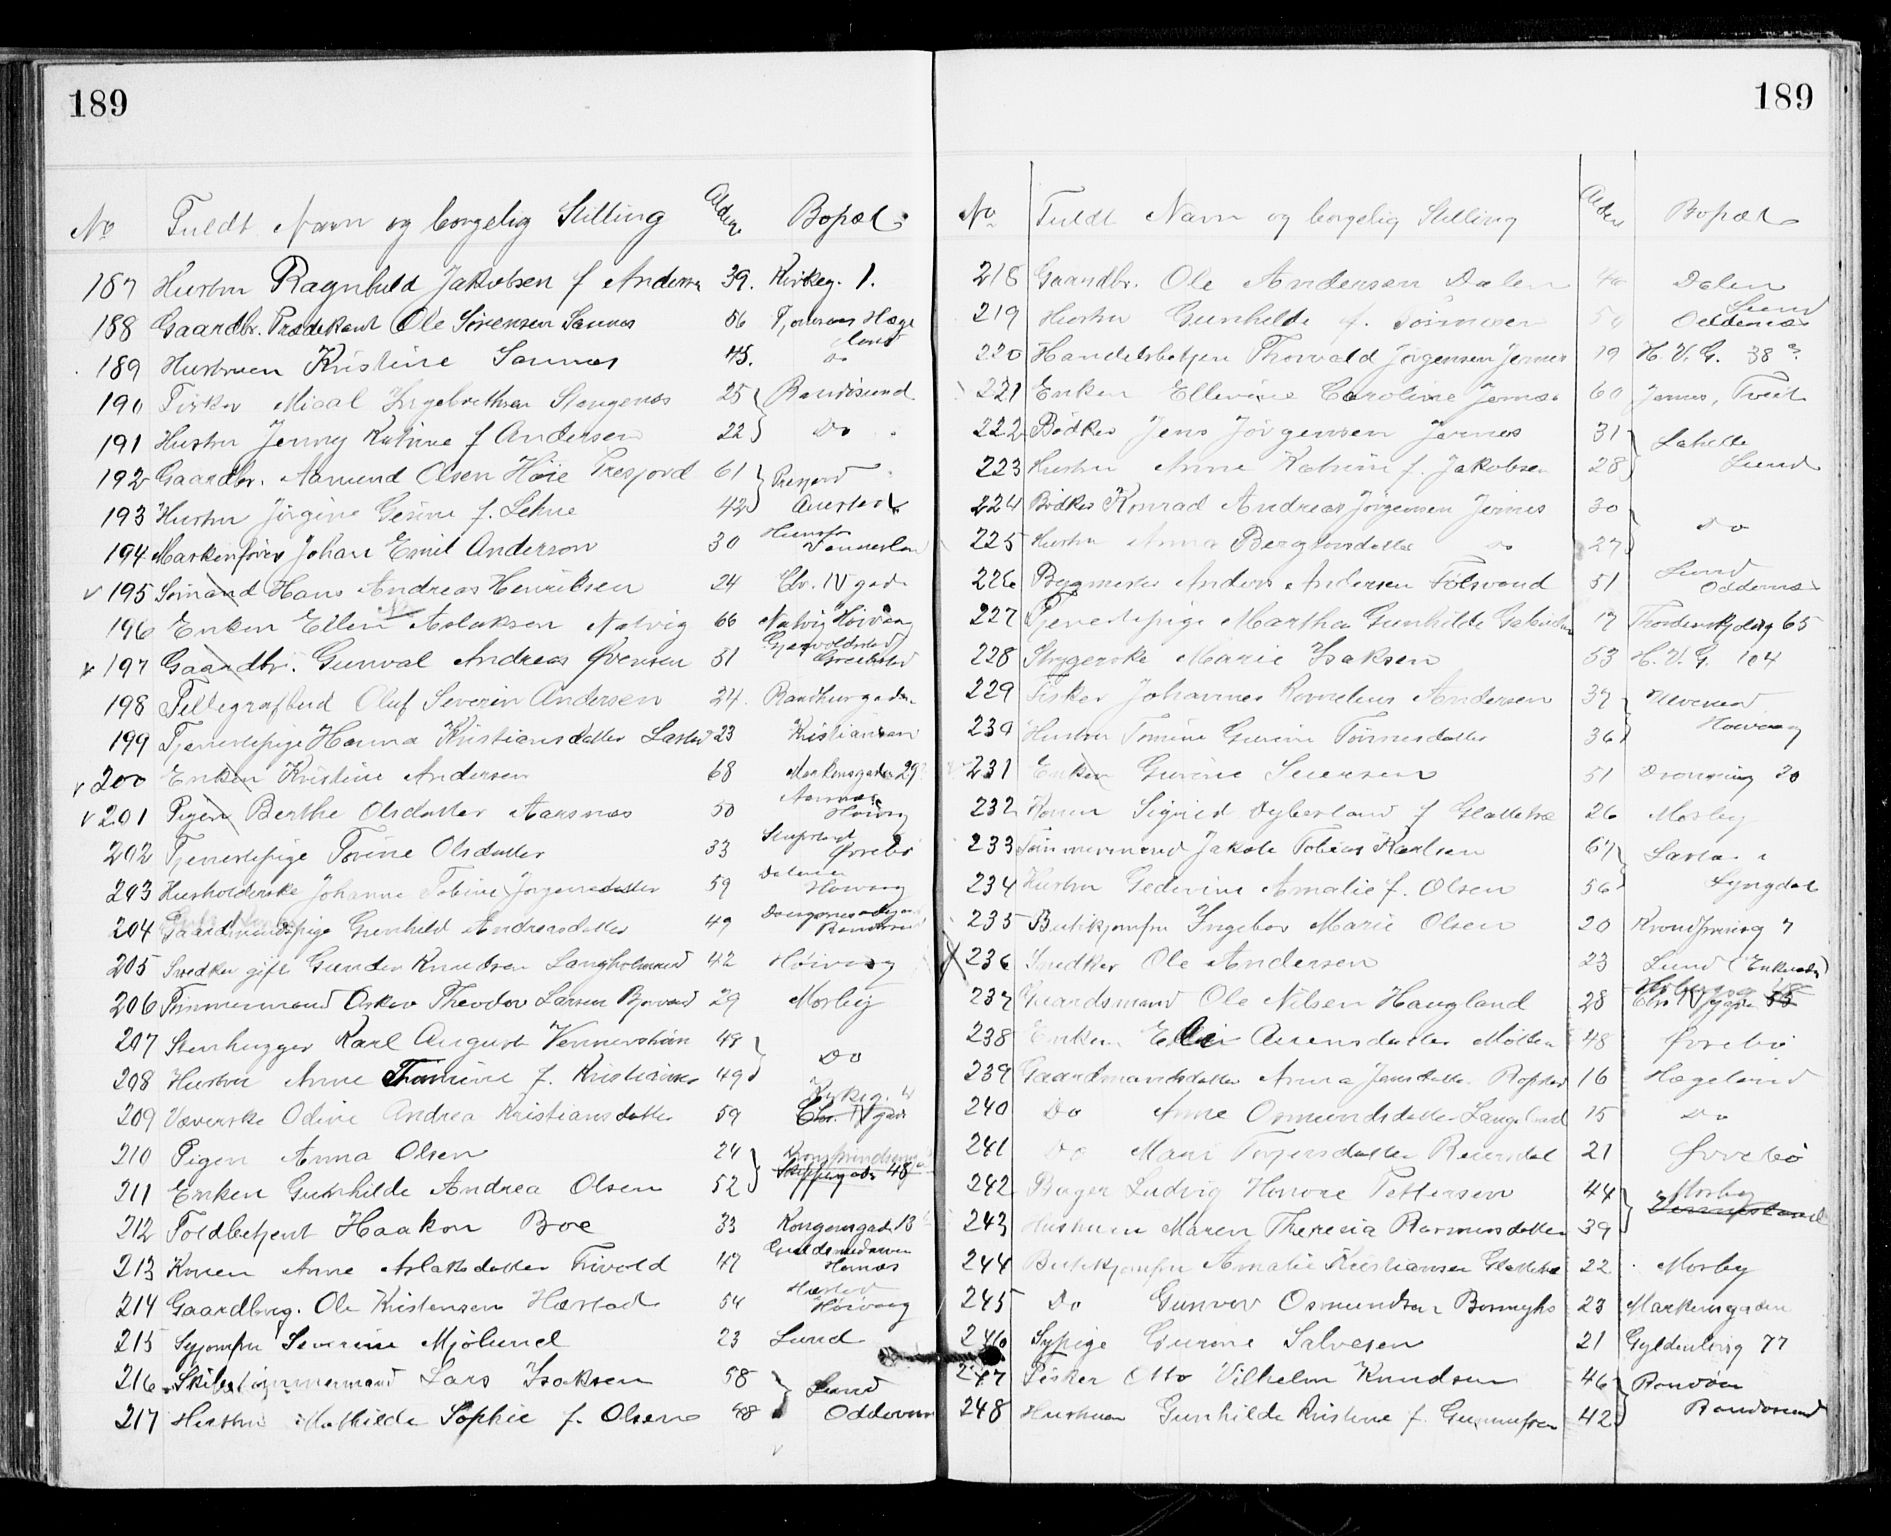 189
No Fuldt Navn og borgelig Stilling Alder Bopæl
187 Hustru Ragnhild Jakobsen f Anderse 39. Kirkeg. 1.
188 Gaardbr. Prædikant Ole Sørensen Sannes 56 Hæge
land
189 Hustruen Kristine Sannes 45. Do
190 Fisker Mical Ingebrethsen Stangenes 25 Randøsund
191 Hustru Jenny Katrine f Andersen 22 Do
192 Gaardbr. Aamund Olsen Høie Tresfjord 61 Tresfjord
193 Hustru Jørgine Gesine f. Lehne 42
194 Maskinfører Johan Emil Anderson 30
195 Sømand Hans Andreas Henriksen 24 Chr. IV gade
196 Enken Ellen Aslaksen Natvig 66 Natvig Høivaag
197 Gaardbr. Gunval Andreas Øvensen 51
198 Tellegrafbud Oluf Severin Andersen 24. Raadhusgaden
199 Tjenestepige Hanna Kristiansdatter 23 Kristiansan
200 Enken Kristine Andersen 68 Markensgaden 29
201 Pigen Berthe Olsdatter Aarsnæs 50 Aarsnæs
Høivaag
202 Tjenestepige Torine Olsdatter 33 Øvrebø
203 Husholderske Johanne Tobine Jørgensdatter 59 Høivaag
204 Gaardmandspige Gunhild Andreasdatter 49 Randøsund
205 Snedker gift Gunder Knudsen Langholmsund 42 Høivaag
206 Tømmermand Oskar Theodor Larsen 29 Mosby
207 Stenhugger Karl August Vennerstrøm 49 Do
208 Hustru Anne Thomine f. Kristiansen 49
209 Væverske Odine Andrea Kristiansdatter 59 Kirkeg. 4
Chr. IV gade
210 Pigen Anna Olsen 24 Kronprindsens
211 Enken Gunhilde Andrea Olsen 52 Skippergade 48
212 Toldbetjent Haakon Boe 33 Kongensgade 13
213 Konen Anne Aslaksdatter Tivold 47 Guldsmedaven
214 Gaardbrug. Ole Kristensen Hæstad 54 Hæstad
Høivaag
215 Syjomfru Severine Mjølund 23 Lund
216 Skibstømmermand Lars Isaksen 58 Lund
217 Hustru Mathilde Sophie f. Olsen 48 Oddernes
189
No Fuldt Navn og borgelig Stilling Alder Bopæl
218 Gaardbr. Ole Andersen Dalen 40 Dalen
219 Hustru Gunhilde f. 50 Lund
Oddernæs
220 Handelsbetjen Thorvald Jørgensen Jernes 19 H. V. G. 38
221 Enken Ellevine Caroline Jernæs 60 Jernes, Tveit
222 Bødker Jens Jørgensen Jernes 31
223 Hustru Anne Katrine f. Jakobsen 28 Lund
224 Bødker Konrad Andreas Jørgensen Jernes 30 Do
225 Hustru Anna Bergtorsdatter Do 27
226 Bygmester Anders Andersen Følsvand 51 Lund
Oddernæs
227 Tjenestepige Martha Gunhilde 17 Tordenskjoldsg 65
228 Strygerske Marie Isaksen 53 H. V. G. 104
229 Fisker Johannes Kornelius Andersen 37 Ulvesund
230 Hustru Tomine Gurine Tønnesdatter 36 Høivaag
231 Enken Gurine Seversen 51 Dronning 20
232 Konen Sigrid Dyberland f Glattetræ 26 Mosby
233 Tømmermand Jakob Tobias Karlsen 67
234 Hustru Gedevine Amalie f. Olsen 56 Lyngdal
235 Butikjomfru Ingebor Marie Olsen 20 Kronprinsg 7
236 Snedker Ole Andersen 23 Lund
237 Gaardsmand Ole Nilsen Haugland 28 Chr. IV gade 53
238 Enken Elen Auensdatter 48 Øvrebø
239 Gaardmandsdatter Anna Jensdatter 16 Hægeland
240 Do Anne Osmundsdatter Langeland 15 Do
241 Do Mari Torjersdatter Reiersdal 21 Øvrebø
242 Bager Ludvig Honore Pettersen 44 Mosby
243 Hustruen Maren Theresia Rasmusdatter 39 Vennesland
244 Butikjomfru Amalie Kristiansen Glattetræ 22 Mosby
245 Do Gunvor Osmundsen 23 Markensgaden
246 Sypige Gurine Salvesen 21 Gyldenløvsg 77
247 Fisker Otto Vilhelm Knudsen 46 Randøen
248 Hustruen Gunhilde Kristine f. Gunnufsen 42 Randøsund